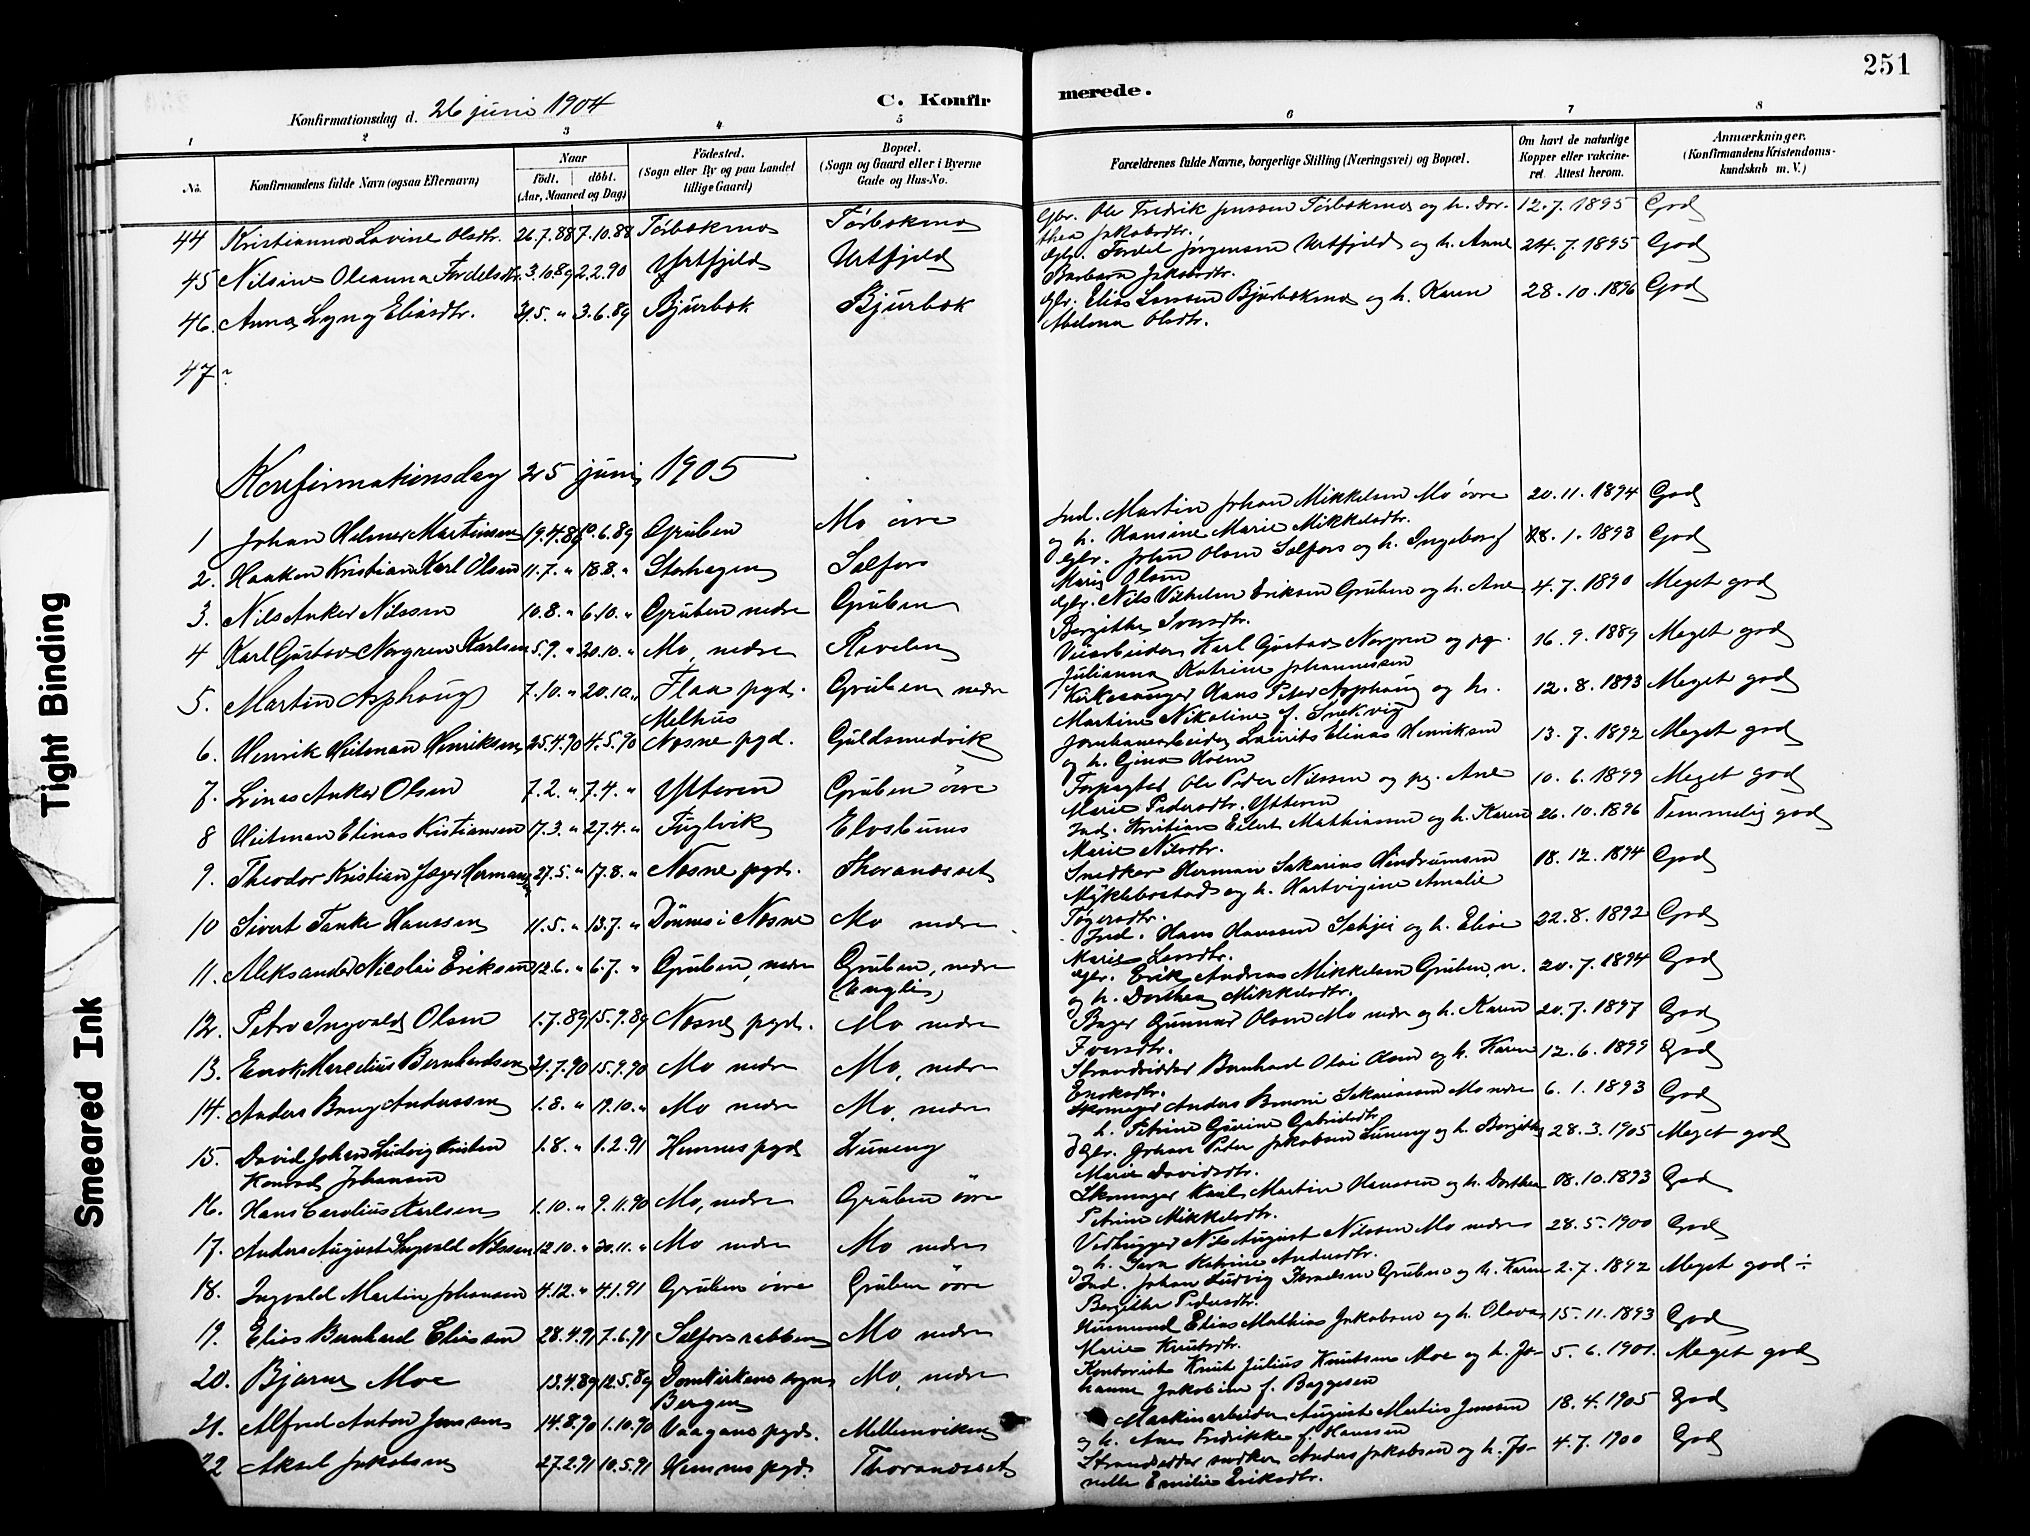 251
Konfirmationsdag d. 26 juni 1904
C. Konfirmerede.
1 2 3 4 5 6 7 8
No.
Konfirmandens fulde Navn (ogsaa Efternavn)
Naar
födt. | döbt.
(Aar, Maaned og Dag)
Födested.
(Sogn eller By og paa Landet tillige Gaard)
Bopæl.
(Sogn og Gaard eller i Byerne Gade og Hus-No.
Forældrenes fulde Navne, borgerlige Stilling (Næringsvei) og Bopæl.
Om havt de naturlige Kopper eller vakcineret. Attest herom.
Anmærkninger.
(Konfirmandens Kristendomskundskab m. V.)
44 Kristianna Lovine Olsdtr. 26.7.88 7.10.88 Törbækmo Törbækmo Gbr. Ole Fredrik Jenssen Törbækmo og h. Dorthea Jakobsdtr. 12.7.1895 God
45 Nilsine Oleanna Fordelsdtr. 3.10.89 2.2.90 Urtfjeld Urtfjeld Gbr. Fordel Jørgensen Urtfjeld og h. Anne Barbara Jakobsdtr. 24.7.1895 God
46. Anna Lyng Eliasdtr. 31.5. " 3.6.89 Bjurbæk Bjurbæk Gbr. Elias Larsen Bjurbækmo og h. Karen Abelona Olsdtr. 28.10.1896 God
47 ~
Konfirmationsdag 25 juni 1905
1 Johan Helmer Martinsen 19.4.89 10.6.89 Gruben Mo övre Ind. Martin Johan Mikkelsen Mo övre og h. Hansine Marie Mikkelsdtr. 20.11.1894 God
2. Haakon Kristian Karl Olsen 11.7. " 18.8. " Storhagen Selfors Gbr. John Olsen Selfors og h. Ingeborg Marie Olsen 28.1.1893 God
3. Nils Anker Nilssen 10.8. " 6.10. " Gruben nedre Gruben Gbr. Nils Vilhelm Eriksen Gruben og h. Ane Bergithe Iversdtr. 4.7.1890 Meget god
4 Karl Gustav Norgren Karlsen 5.9. " 20.10. " Mo, nedre Revelen Veiarbeider Karl Gustav Norgren og pg. Julianna Katrine Johannessen 16.9.1889 Meget god
5. Martin Asphaug 7.10. " 20.10. " Flaa pgd. Melhus Gruben nedre Kirkesanger Hans Peter Asphaug og h. Martine Nikoline f. Snekvig 12.8.1893 Meget god
6. Henrik Heitman Henriksen 25.4.90 4.5.90 Nesne pgd. Guldsmedvik Jernbanearbeider Laurits Elinas Henriksen og h. Gina Hoem 13.7.1892 Meget god
7. Linas Anker Olsen 7.2. " 7.4. " Ytteren Gruben övre Forpagter Ole Peder Nilssen og pg. Ane Marie Pedersdtr. Ytteren 10.6.1899 Meget god
8 Heitman Elinas Kristiansen 17.3. " 27.4. " Fuglvik Ind. Kristian Eilert Mathiassen og h. Karen Marie Nilsdtr. 26.10.1896 Temmelig god
9. Theodor Kristian Jæger Hermansen 27.5. " 17.8. " Nesne pgd. Thoranesset Snedker Herman Sakarias Hendrumsen Myklebostad og h. Hartvigine Amalie Tøgersdtr. 18.12.1894 God
10 Sivert Tanke Hanssen 11.5. " 13.7. " Dönnes i Nesne Mo nedre Ind. Hans Hanssen Schjei og h. Elise Marie Larsdtr. 22.8.1892 God
11. Aleksander Nicolai Eriksen 12.6. " 6.7. " Gruben, nedre Gruben, nedre Gbr. Erik Andreas Mikkelsen Gruben, n. og h. Dorthea Mikkelsdtr. 20.7.1894 God
12. Petro Ingvald Olsen 1.7.89 15.9.89 Nesne pgd. Mo nedre Bager Gunnar Olsen Mo nedre og h. Karen Iversdtr. 20.7.1897 God
13. Enok Marselius Bernhardsen 31.7.90 15.9.90 Mo nedre Mo, nedre Strandsidder Bernhard Olai Olsen og h. Karen Enoksdtr. 12.6.1899 God
14. Anders Berg Anderssen 1.8. " 19.10. " Mo nedre Mo, nedre Skomager Anders Benoni Sakariassen Mo nedre og h. Petrine Gurine Gabrielsdtr. 6.1.1893 God
15. David Johan Ludvig Kristen Konrad Johansen 1.8. " 1.2.91 Hemnes pgd. Luneng Gbr. Johan Peter Jakobsen Luneng og h. Bergitha Marie Davidsdtr. 28.3.1905 Meget god
16. Hans Carolius Karlsen 1.10. " 9.11.90 Mo, nedre Gruben övre Skomager Karl Martin Hanssen og h. Dorthea Petrine Mikkelsdtr. 18.10.1893 God
17. Anders August Ingvald Nilssen 12.10. " 30.11. " Mo nedre Mo nedre Vedhugger Nils August Nilssen Mo nedre og h. Sara Katrine Andersdtr. 28.5.1900 God
18. Ingvald Martin Johansen 4.12. " 4.1.91 Gruben övre Gruben övre Ind. Johan Ludvig Israelsen Gruben og h. Karen Bergithe Pedersdtr. 2.7.1892 Meget god ÷
19. Elias Bernhard Eliassen 28.4.91 7.6.91 Selforsrabben Mo nedre Husmand Elias Mathias Jakobsen og h. Olava Marie Knutsdtr. 15.11.1893 God
20. Bjarne Moe 13.4.89 12.5.89 Domkirkens sogn Bergen Mo, nedre Kontorist Knut Julius Knutsen Moe og h. Johanne Jakobine f. Baggesen 5.6.1901. Meget god
21. Alfred Anton Jenssen 14.8.90 1.10.90 Vaagans pgd. Mellemviken Maskinarbeider August Martius Jenssen og h. Ane Fredrikke f. Hanssen 18.4.1905 God
22 Aksel Jakobsen 27.2.91 10.5.91 Hemnes pgd. Thoranesset Strandsidder snedker Anders Jakobsen og h. Jonelle Emilie Eriksdtr. 4.7.1900 God
Tight Binding
Smeared Ink